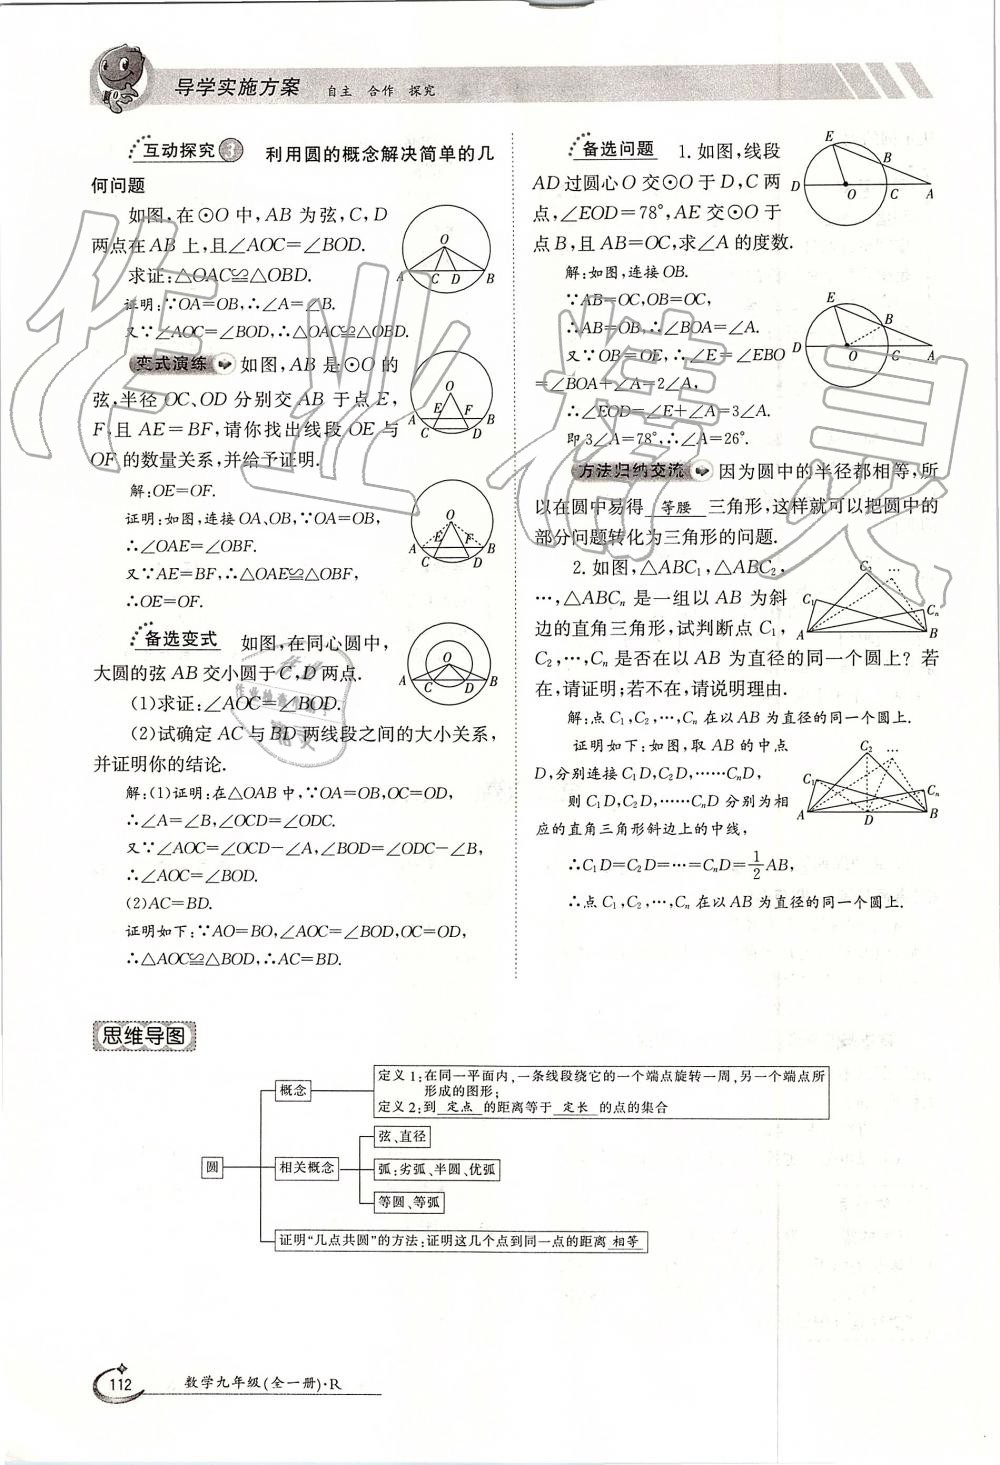 导学实施方案 自主 合作 探究
互动探究3 利用圆的概念解决简单的几
何问题
如图,在⊙O中,AB为弦,C,D
两点在AB上,且∠AOC=∠BOD.
求证:△OAC≌△OBD.
证明:∵OA=OB,∴∠A=∠B.
又∵∠AOC=∠BOD,∴△OAC≌△OBD.
变式演练 如图,AB是⊙O的
弦,半径OC、OD分别交AB于点E,
F,且AE=BF,请你找出线段OE与
OF的数量关系,并给予证明.
解:OE=OF.
证明:如图,连接OA、OB,∵OA=OB,
∴∠OAE=∠OBF.
又∵AE=BF,∴△OAE≌△OBF,
∴OE=OF.
备选变式 如图,在同心圆中,
大圆的弦AB交小圆于C,D两点.
(1)求证:∠AOC=∠BOD.
(2)试确定AC与BD两线段之间的大小关系,
并证明你的结论.
解:(1)证明:在△OAB中,∵OA=OB,OC=OD,
∴∠A=∠B,∠OCD=∠ODC.
又∵∠AOC=∠OCD-∠A,∠BOD=∠ODC-∠B,
∴∠AOC=∠BOD.
(2)AC=BD.
证明如下:∵AO=BO,∠AOC=∠BOD,OC=OD,
∴△AOC≌△BOD,∴AC=BD.
备选问题 1.如图,线段
AD过圆心O交⊙O于D,C两
点,∠EOD=78°,AE交⊙O于
点B,且AB=OC,求∠A的度数.
解:如图,连接OB.
∵AB=OC,OB=OC,
∴AB=OB,∴∠BOA=∠A.
又∵OB=OE,∴∠E=∠EBO
=∠BOA+∠A=2∠A,
∴∠EOD=∠E+∠A=3∠A.
即3∠A=78°,∴∠A=26°.
方法归纳交流 因为圆中的半径都相等,所
以在圆中易得 等腰 三角形,这样就可以把圆中的
部分问题转化为三角形的问题.
2.如图,△ABC₁,△ABC₂,
…,△ABCₙ是一组以AB为斜
边的直角三角形,试判断点C₁,
C₂,…,Cₙ是否在以AB为直径的同一个圆上?若
在,请证明;若不在,请说明理由.
解:点C₁,C₂,…,Cₙ在以AB为直径的同一个圆上.
证明如下:如图,取AB的中点
D,分别连接C₁D,C₂D,……CₙD,
则C₁D,C₂D,……CₙD分别为相
应的直角三角形斜边上的中线,
∴C₁D=C₂D=…=CₙD=1/2AB,
∴点C₁,C₂,…,Cₙ在以AB为直径的同一个圆上.
思维导图
圆
概念
定义1:在同一平面内,一条线段绕它的一个端点旋转一周,另一个端点所
形成的图形;
定义2:到 定点 的距离等于 定长 的点的集合
相关概念
弦、直径
弧:劣弧、半圆、优弧
等圆、等弧
证明“几点共圆”的方法:证明这几个点到同一点的距离 相等
112 数学九年级(全一册)·R
作业精灵